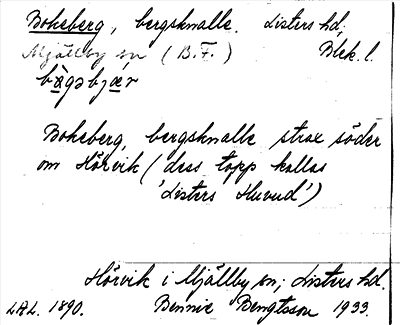 Bokeberg, bergsknalle. Listers hd;
Mjällby sn (B.F.) Blek. l.
Bokeberg, bergsknalle strax söder
om Hörvik (dess topp kallas
'Listers Huvud')
Hörvik i Mjällby sn; Listers hd.
LAL. 1890. Bennie Bengtsson 1933.